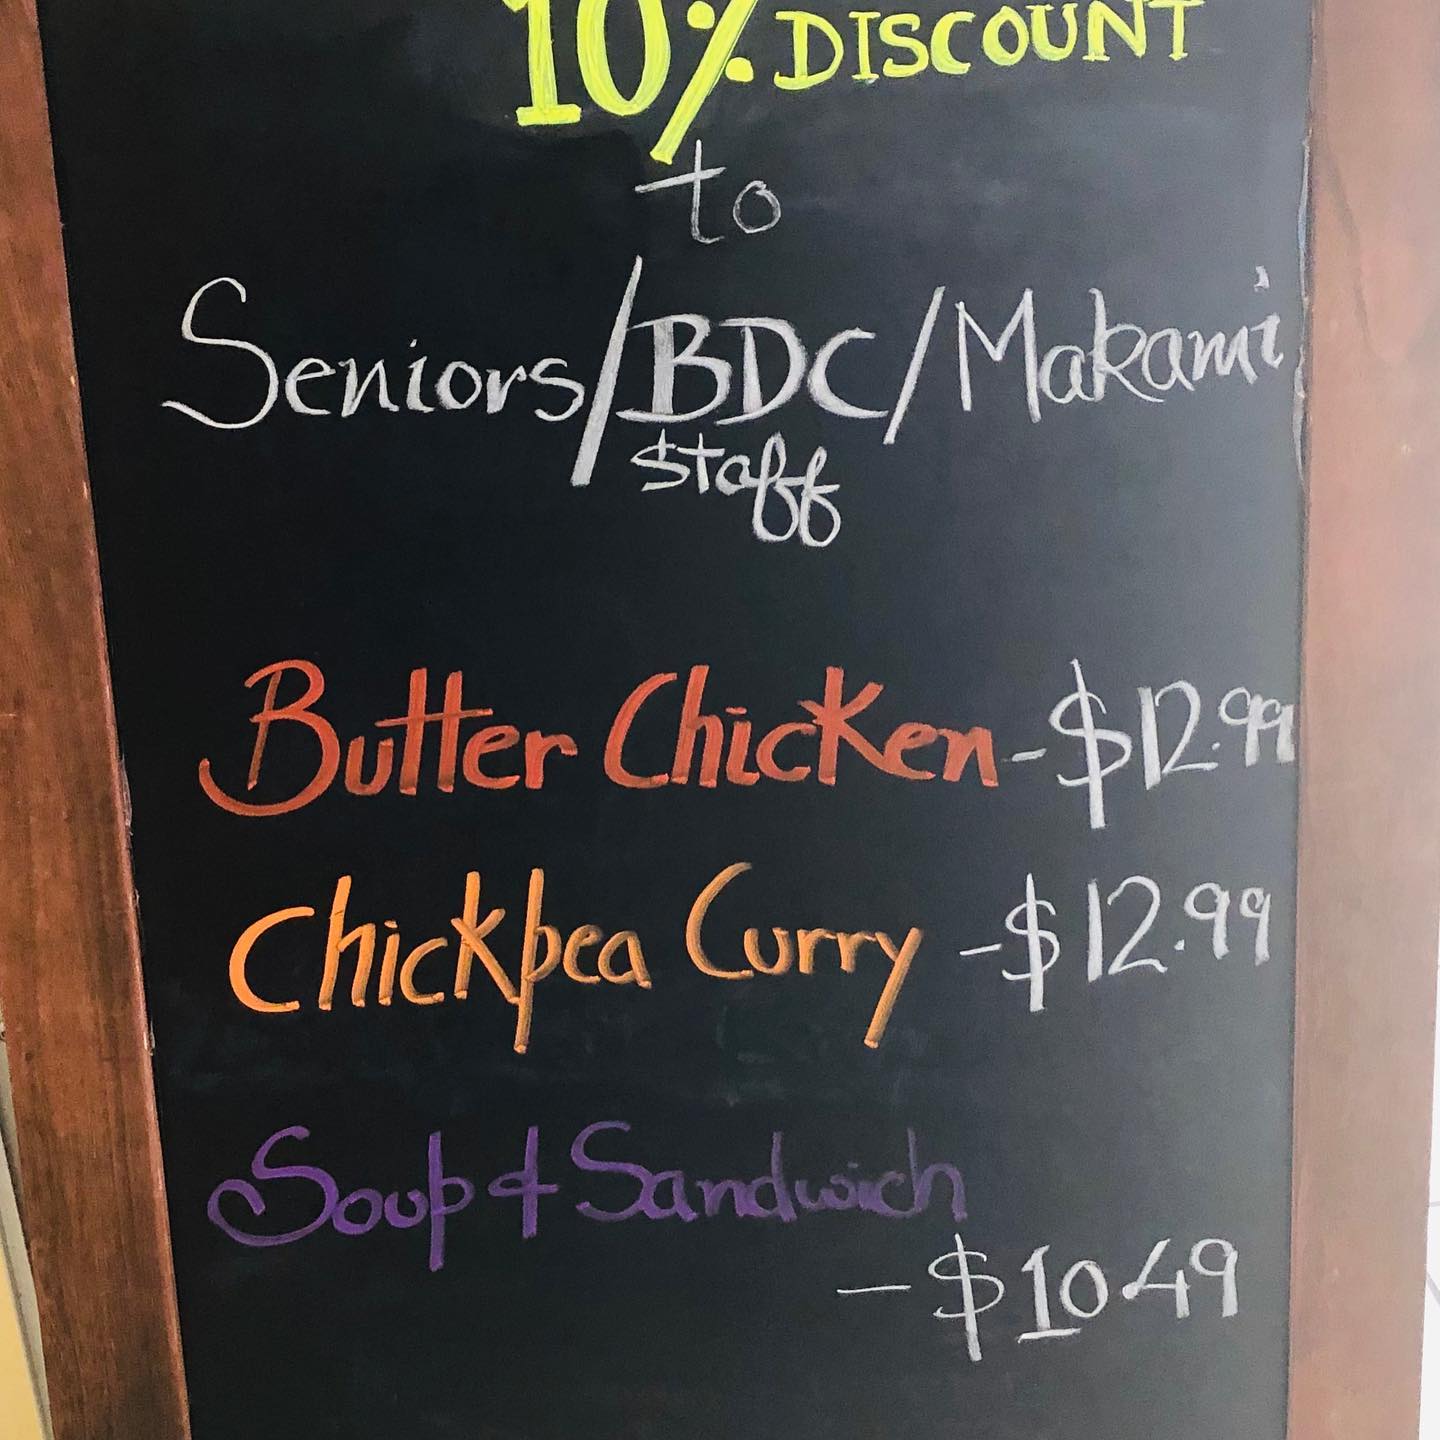 10% DISCOUNT
to
Seniors/BDC/Makami
staff
Butter Chicken-$12.99
Chickpea Curry -$12.99
Soup & Sandwich
-$10.49